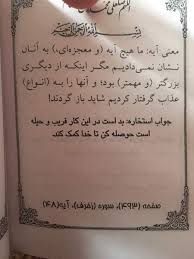 بسم الله الرحمن الرحیم
معنی آیه: ما هیچ آیه (و معجزه‌ای،) به آنان
نشان نمی‌دادیم مگر اینکه از دیگری
بزرگتر (و مهمتر) بود؛ و آنها را بـه (انـواع)
عذاب گرفتار کردیم شاید باز گردند!
جواب استخاره: بد است در این کار فریب و حیله
است حوصله کن تا خدا کمک کند.
صفحه (۴۹۳)، سوره (زخرف)، آیه(۴۸)